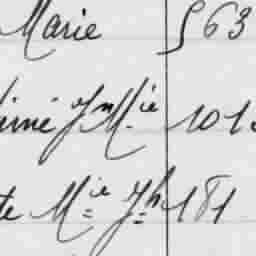 Marie 563
Jn Mie 101
Mie Jh 181